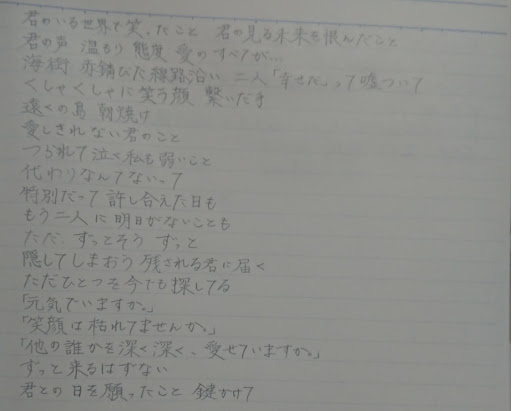 君のいる世界で笑ったこと 君の見る未来を恨んだこと
君の声 温もり 態度 愛のすべてが…
海街 赤錆びた線路沿い 二人「幸せだ」って嘘ついて
くしゃくしゃに笑う顔 繋いだ手
遠くの島 朝焼け
愛しきれない君のこと
つられて泣く私も弱いこと
代わりなんてないって
特別だって 許し合えた日も
もう二人に明日がないことも
ただ、ずっとそう ずっと
隠してしまおう 残される君に届く
ただひとつを今でも探してる
「元気でいますか。」
「笑顔は枯れてませんか。」
「他の誰かを深く深く、愛せていますか。」
ずっと来るはずない
君との日を願ったこと 鍵かけて